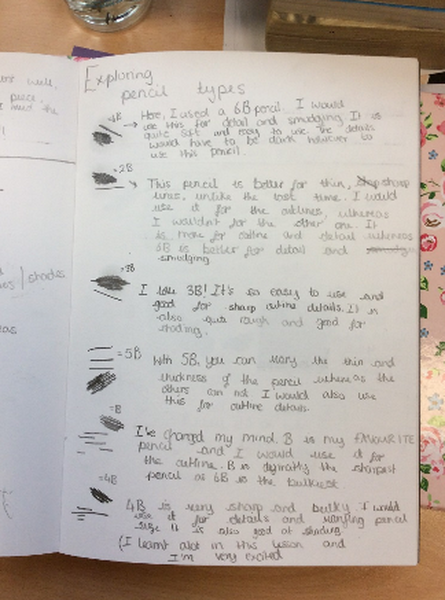 Exploring
pencil types
Here, I used a 6B pencil. I would
use this for detail and smudging. It is
quite soft and easy to use. The details
would have to be dark however to
use this pencil.
=2B
This pencil is better for thin, sharp
lines, unlike the last time. I would
use it for the outlines, whereas
I wouldn't for the other one. It
is more for outline and detail whereas
is better for detail and
smudging
=3B
I love 3B! It's so easy to use and
good for sharp outline details. It is
also quite rough and good for
shading.
=5B
With 5B, you can vary the thin and
thickness of the pencil whereas the
others can not I would also use
this for outline details.
=B
I've changed my mind. B is my FAVOURITE
pencil and I would use it for
the outline. B is definitely the sharpest
pencil as 6B is the bulkiest
=4B
4B is very sharp and bulky. I would
use it for details and varying pencil
size. It is also good at shading.
(I learnt alot in this lesson and
I'm very excited
well.
piece.
the
/ shades